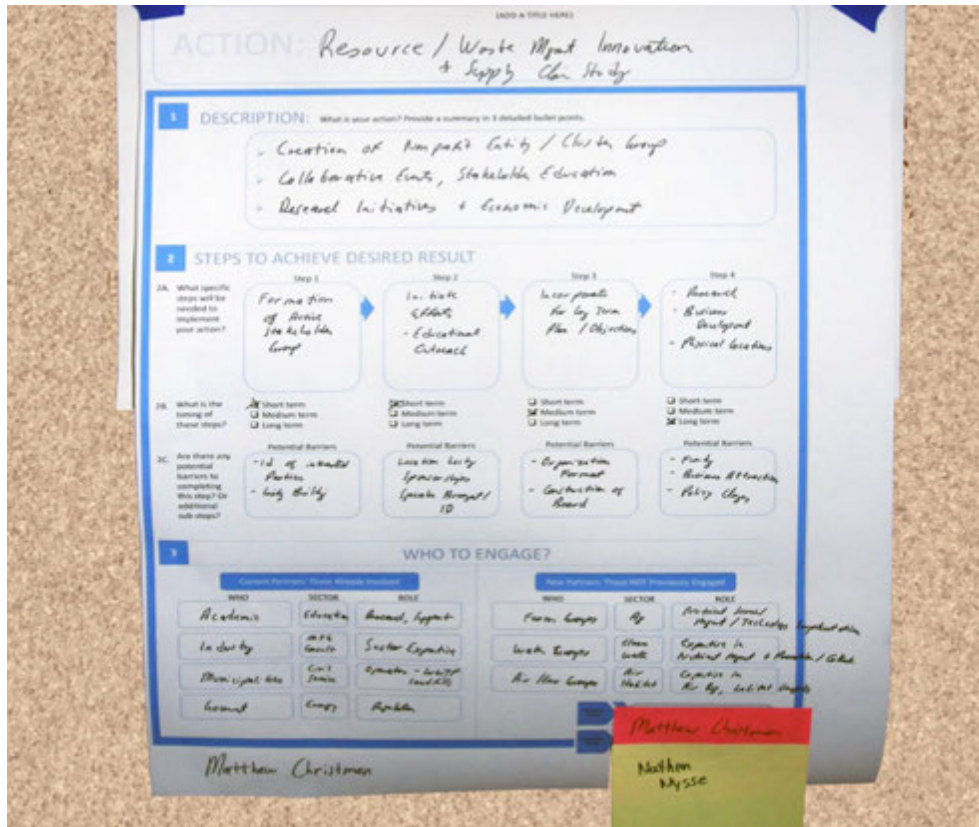 (ADD A TITLE HERE)
ACTION: Resource / Waste Mgmt Innovation
+ Supply Chin Study
1 DESCRIPTION: What is your action? Provide a summary in 3 detailed bullet points.
- Creation of Nonprofit Entity / Cluster Group
- Collaborative Events, Stakeholder Education
- Research Initiatives + Economic Development
2 STEPS TO ACHIEVE DESIRED RESULT
2A. What specific steps will be needed to implement your action?
Step 1
Formation
of Active
Stakeholder
Group
Step 2
Initiate
Efforts
- Educational
Outreach
Step 3
Incorporate
for long Term
Plan / Objectives
Step 4
- Research
- Business
Development
- Physical Locations
2B. What is the timing of these steps?
Short term
Medium term
Long term
Short term
Medium term
Long term
Short term
Medium term
Long term
Short term
Medium term
Long term
2C. Are there any potential barriers to completing this step? Or additional sub-steps?
Potential Barriers
- Id of interested
Parties
Potential Barriers
Location
Sponsorships
Speaker
ID
Potential Barriers
- Organization
Format
- Construction of
Board
Potential Barriers
- Business Attraction
- Policy
3 WHO TO ENGAGE?
Current Partners: Those Already Involved
WHO SECTOR ROLE
Academic Education Research, Support
Industry Sector Expertise
Municipalities Civil
Energy
New Partners: Those NOT Previously Engaged
WHO SECTOR ROLE
Farm Groups Ag
Water Groups Clean Water Expertise in
Air Groups Air Expertise in
Matthew Christmen
Matthew Christmen
Nathen
Nysse